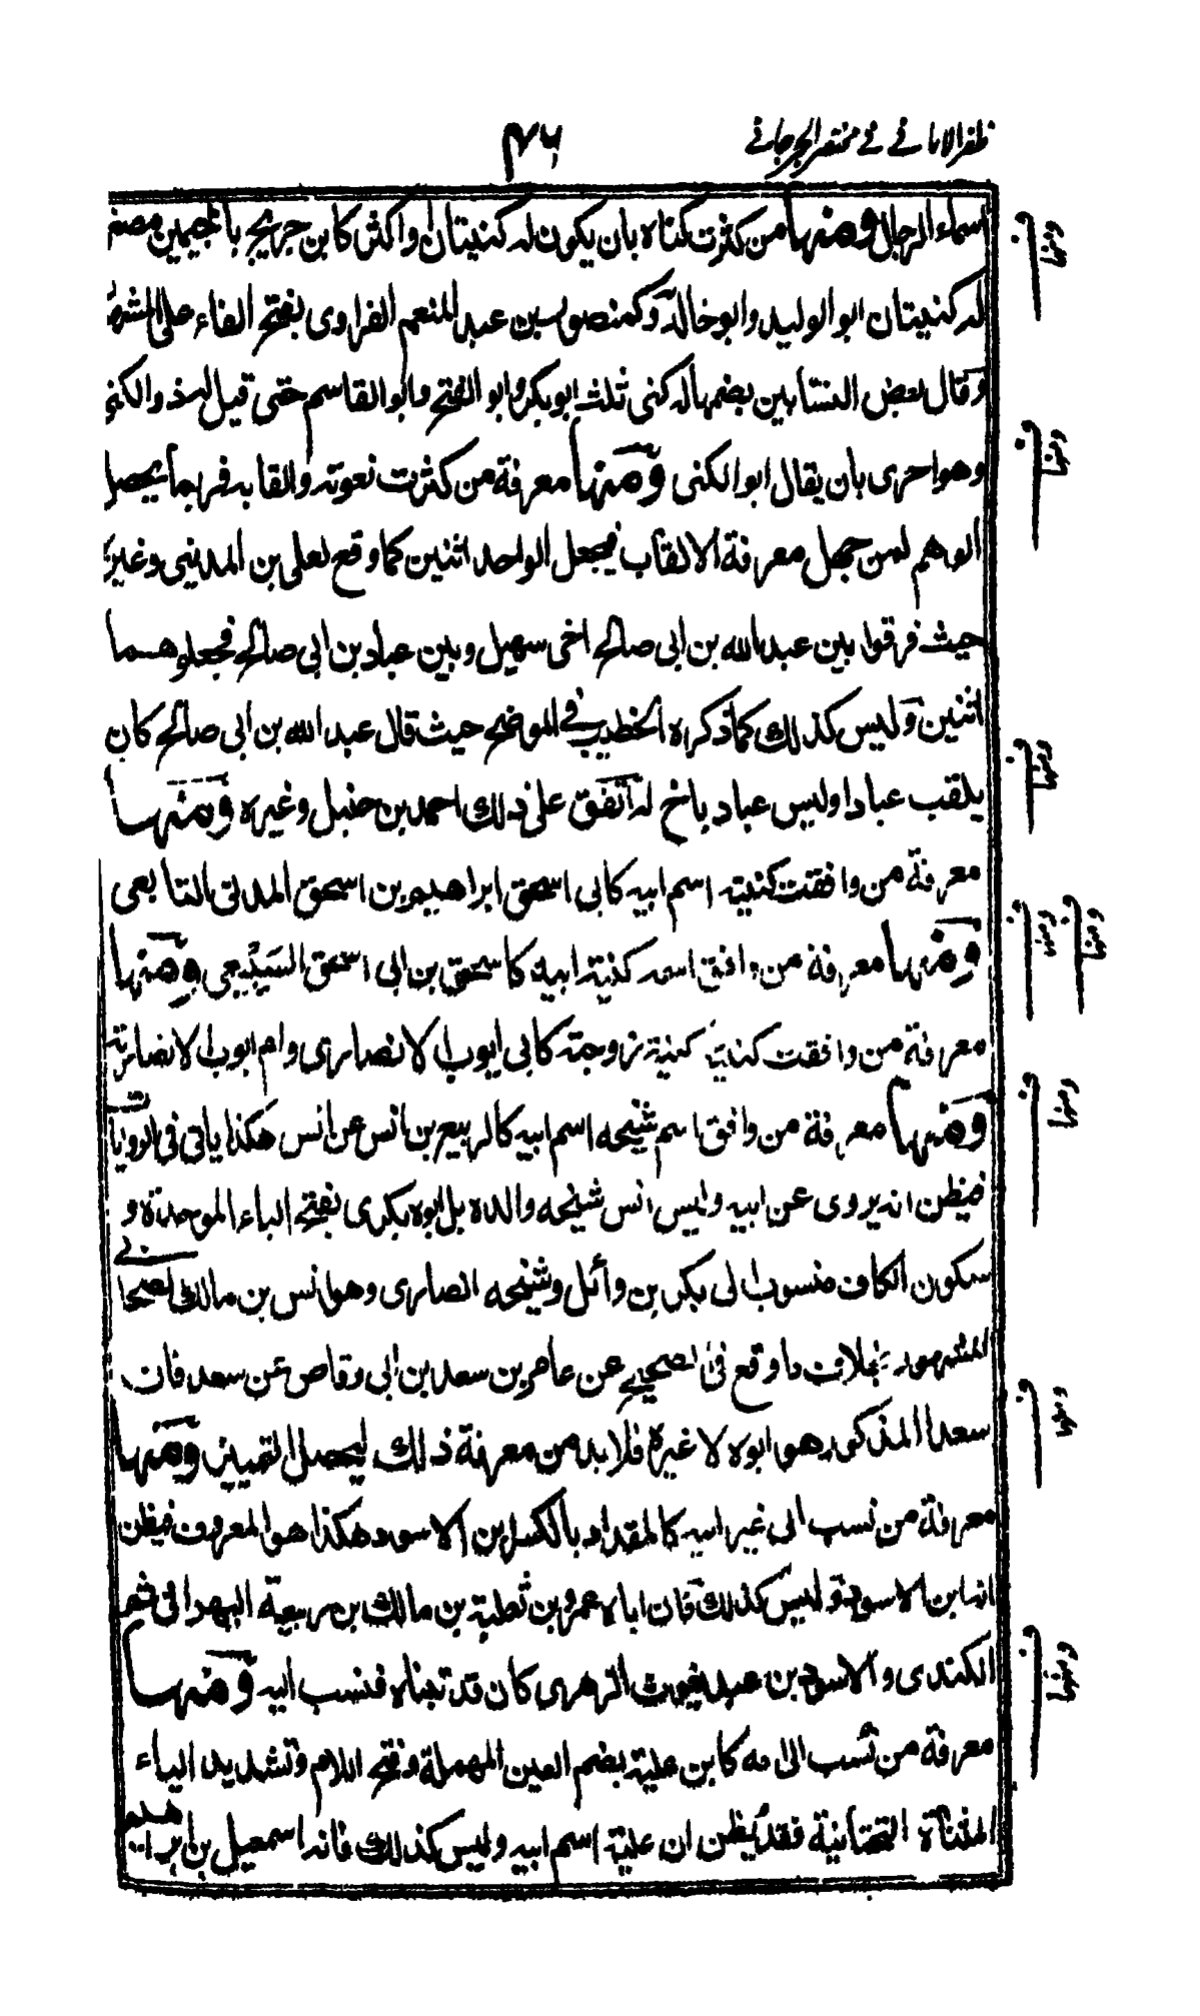 ظفر الامانے فے مختصر الجرجانے
٤٦
اسماء الرجال ومنها من كثرت كناه بان يكون له كنيتان او اكثر كابن جريج بالجيمين مصغرا
له كنيتان ابو الوليد وابو خالد وكمنصور بن عبد المنعم الفراوى بفتح الفاء على المشهور
وقال بعض النسابين بضمها له كنى ثلث ابو بكر وابو الفتح وابو القاسم حتى قيل له ذو الكنى
وهو احرى بان يقال ابو الكنى ومنها معرفة من كثرت نعوته والقابه فربما يحصل
الوهم لمن جهل معرفة الالقاب فيجعل الواحد اثنين كما وقع لعلى بن المدينى وغيره
حيث فرقوا بين عبد الله بن ابى صالح اخى سهيل وبين عباد بن ابى صالح فجعلوهما
اثنين وليس كذلك كما ذكره الخطيب فے الموضح حيث قال عبد الله بن ابى صالح كان
يلقب عبادا وليس عباد باخ له اتفق على ذلك احمد بن حنبل وغيره ومنها
معرفة من وافقت كنيته اسم ابيه كابى اسحق ابراهيم بن اسحق المدنى التابعى
ومنها معرفة من وافق اسمه كنية ابيه كاسحق بن ابى اسحق السبيعى ومنها
معرفة من وافقت كنيته كنية زوجته كابى ايوب الانصارى وام ايوب الانصارية
ومنها معرفة من وافق اسم شيخه اسم ابيه كالربيع بن انس عن انس هكذا ياتى فى الروايات
فيظن انه يروى عن ابيه وليس انس شيخه والده بل ابوه بكرى بفتح الباء الموحدة و
سكون الكاف منسوب الى بكر بن وائل وشيخه انصارى وهو انس بن مالك الصحابے
المشهور بخلاف ما وقع فى الصحيح عن عامر بن سعد بن ابى وقاص عن سعد فان
سعدا المذكور هو ابوه لا غيره فلا بد من معرفة ذلك ليحصل التمييز ومنها
معرفة من نسب الى غير ابيه كالمقداد بالكسر بن الاسود هكذا هو المعروف فيظن
انه ابن الاسود وليس كذلك فان اباه عمرو بن ثعلبة بن مالك بن ربيعة البهرانى ثم
الكندى والاسود بن عبد يغوث الزهرى كان قد تبناه فنسب اليه ومنها
معرفة من نسب الى امه كابن علية بضم العين المهملة وفتح اللام وتشديد الياء
المثناة التحتانية فقد يظن ان علية اسم ابيه وليس كذلك فانه اسمعيل بن ابراهيم
ومنها
ومنها
ومنها
ومنها
ومنها
ومنها
ومنها
ومنها